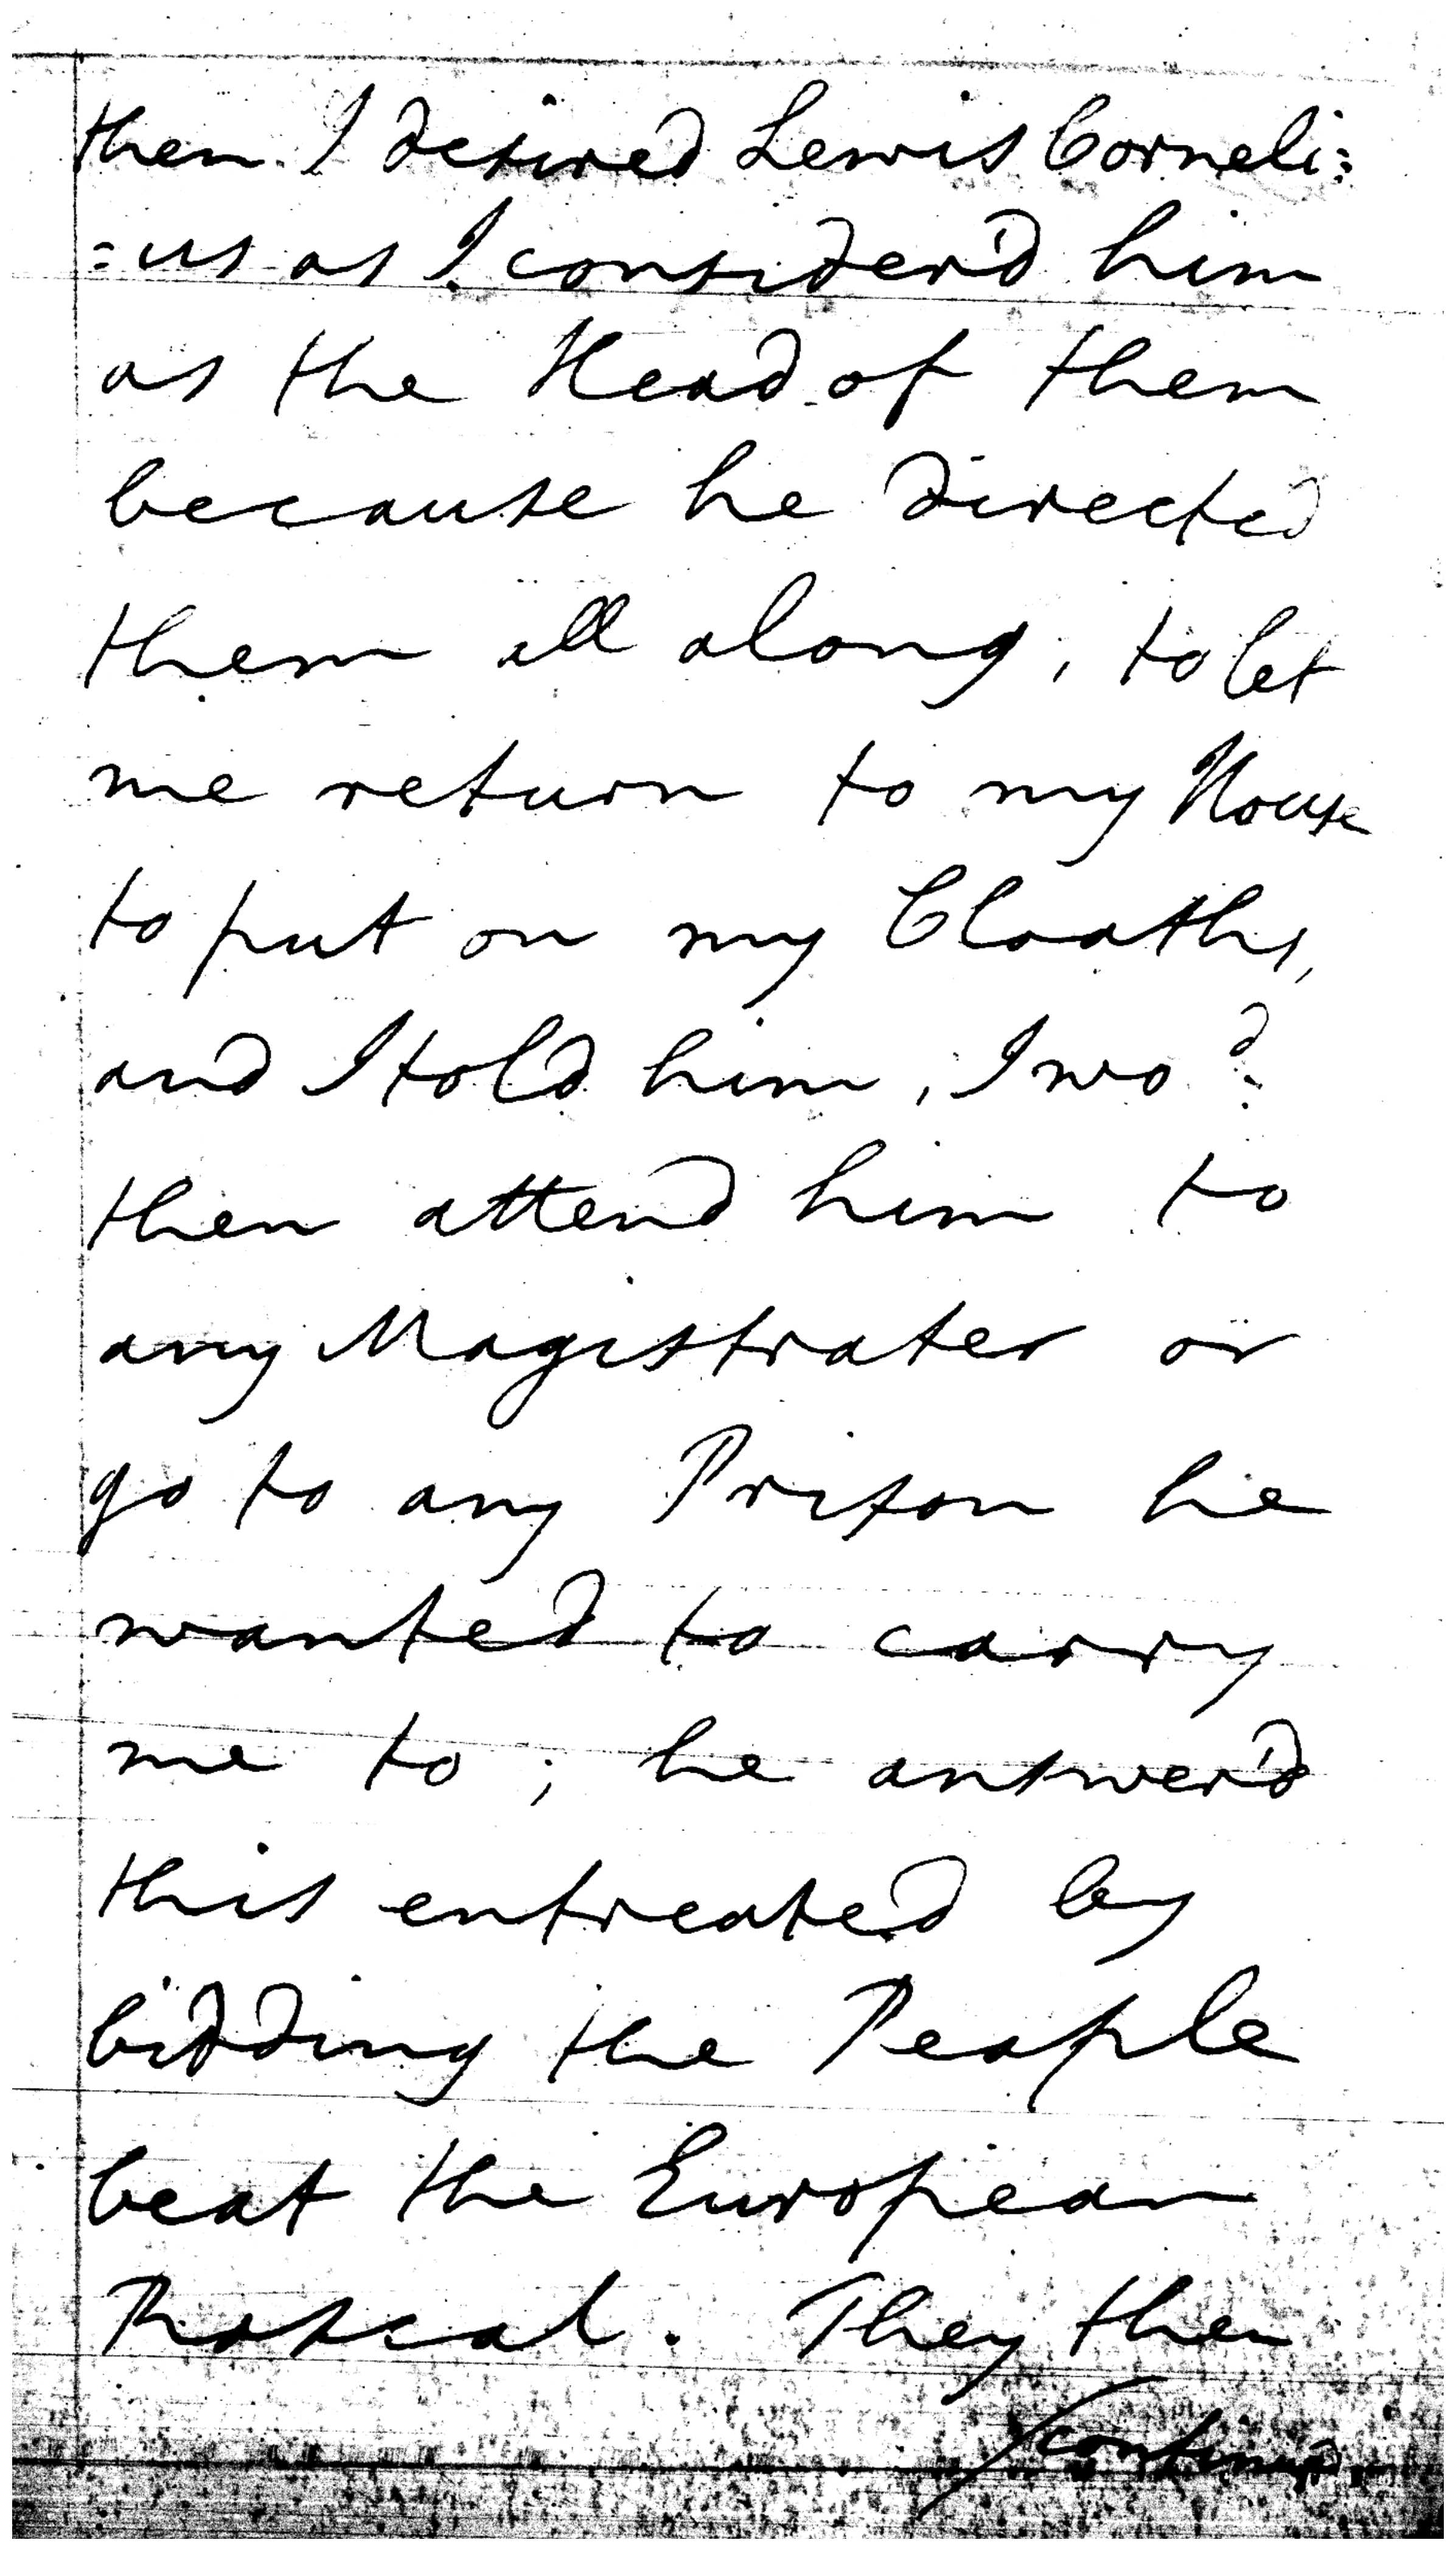 then I desired Lewis Corneli=
=us as I consider'd him
as the Head of them
because he directed
them all along, to let
me return to my House
to put on my Cloaths,
and I told him, I wo.^d
then attend him to
any Magistrates or
go to any Prison he
wanted to carry
me to; he answer'd
this entreated by
bidding the People
beat the European
Rascal. They then
/continued